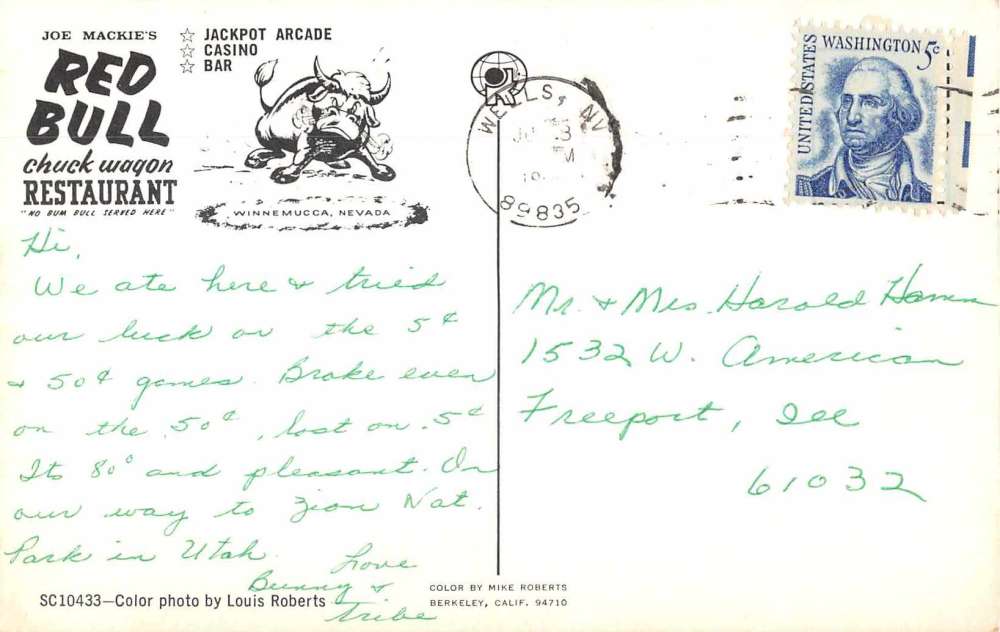 JOE MACKIE'S
RED
BULL
chuck wagon
RESTAURANT
"NO BUM BULL SERVED HERE"
☆ JACKPOT ARCADE
☆ CASINO
☆ BAR
WINNEMUCCA, NEVADA
WELLS, NV
PM
89835
UNITED STATES
WASHINGTON 5¢
Hi,
We ate here & tried
our luck on the 5¢
& 50¢ games. Broke even
on the 50¢, lost on 5¢
Its 80° and pleasant. On
our way to Zion Nat.
Park in Utah.
Love
Bunny &
tribe
Mr. & Mrs. Harold Hamm
1532 W. American
Freeport, Ill
61032
SC10433—Color photo by Louis Roberts
COLOR BY MIKE ROBERTS
BERKELEY, CALIF. 94710